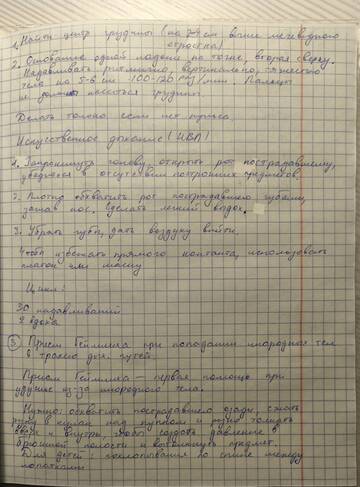 1. Найти центр грудины (на 2 см выше мечевидного
отростка)
2. Основание одной ладони на точке, вторая сверху.
Надавливать ритмично, вертикально, тяжестью
тела на 5-6 см 100-120 /мин. Пальцы
не должны касаться грудины.
Делать только если нет пульса
Искусственное дыхание (ИВЛ)
1. Запрокинуть голову, открыть рот пострадавшему,
убедиться в отсутствии посторонних предметов.
2. Плотно обхватить рот пострадавшего губами,
зажав нос. Сделать легкий выдох.
3. Убрать губы, дать воздуху выйти.
Чтобы избежать прямого контакта, использовать
платок или маску
Цикл:
30 надавливаний
2 вдоха
3 Прием Геймлиха при попадании инородных тел
в трахею дых. путей.
Прием Геймлиха – первая помощь при
удушье из-за инородного тела.
Нужно: обхватить пострадавшего сзади, сжать
руку в кулак над пупком и резко толкать
вверх и внутрь, чтобы создать давление в
брюшной полости и вытолкнуть предмет.
Для детей - похлопывания по спине между
лопатками